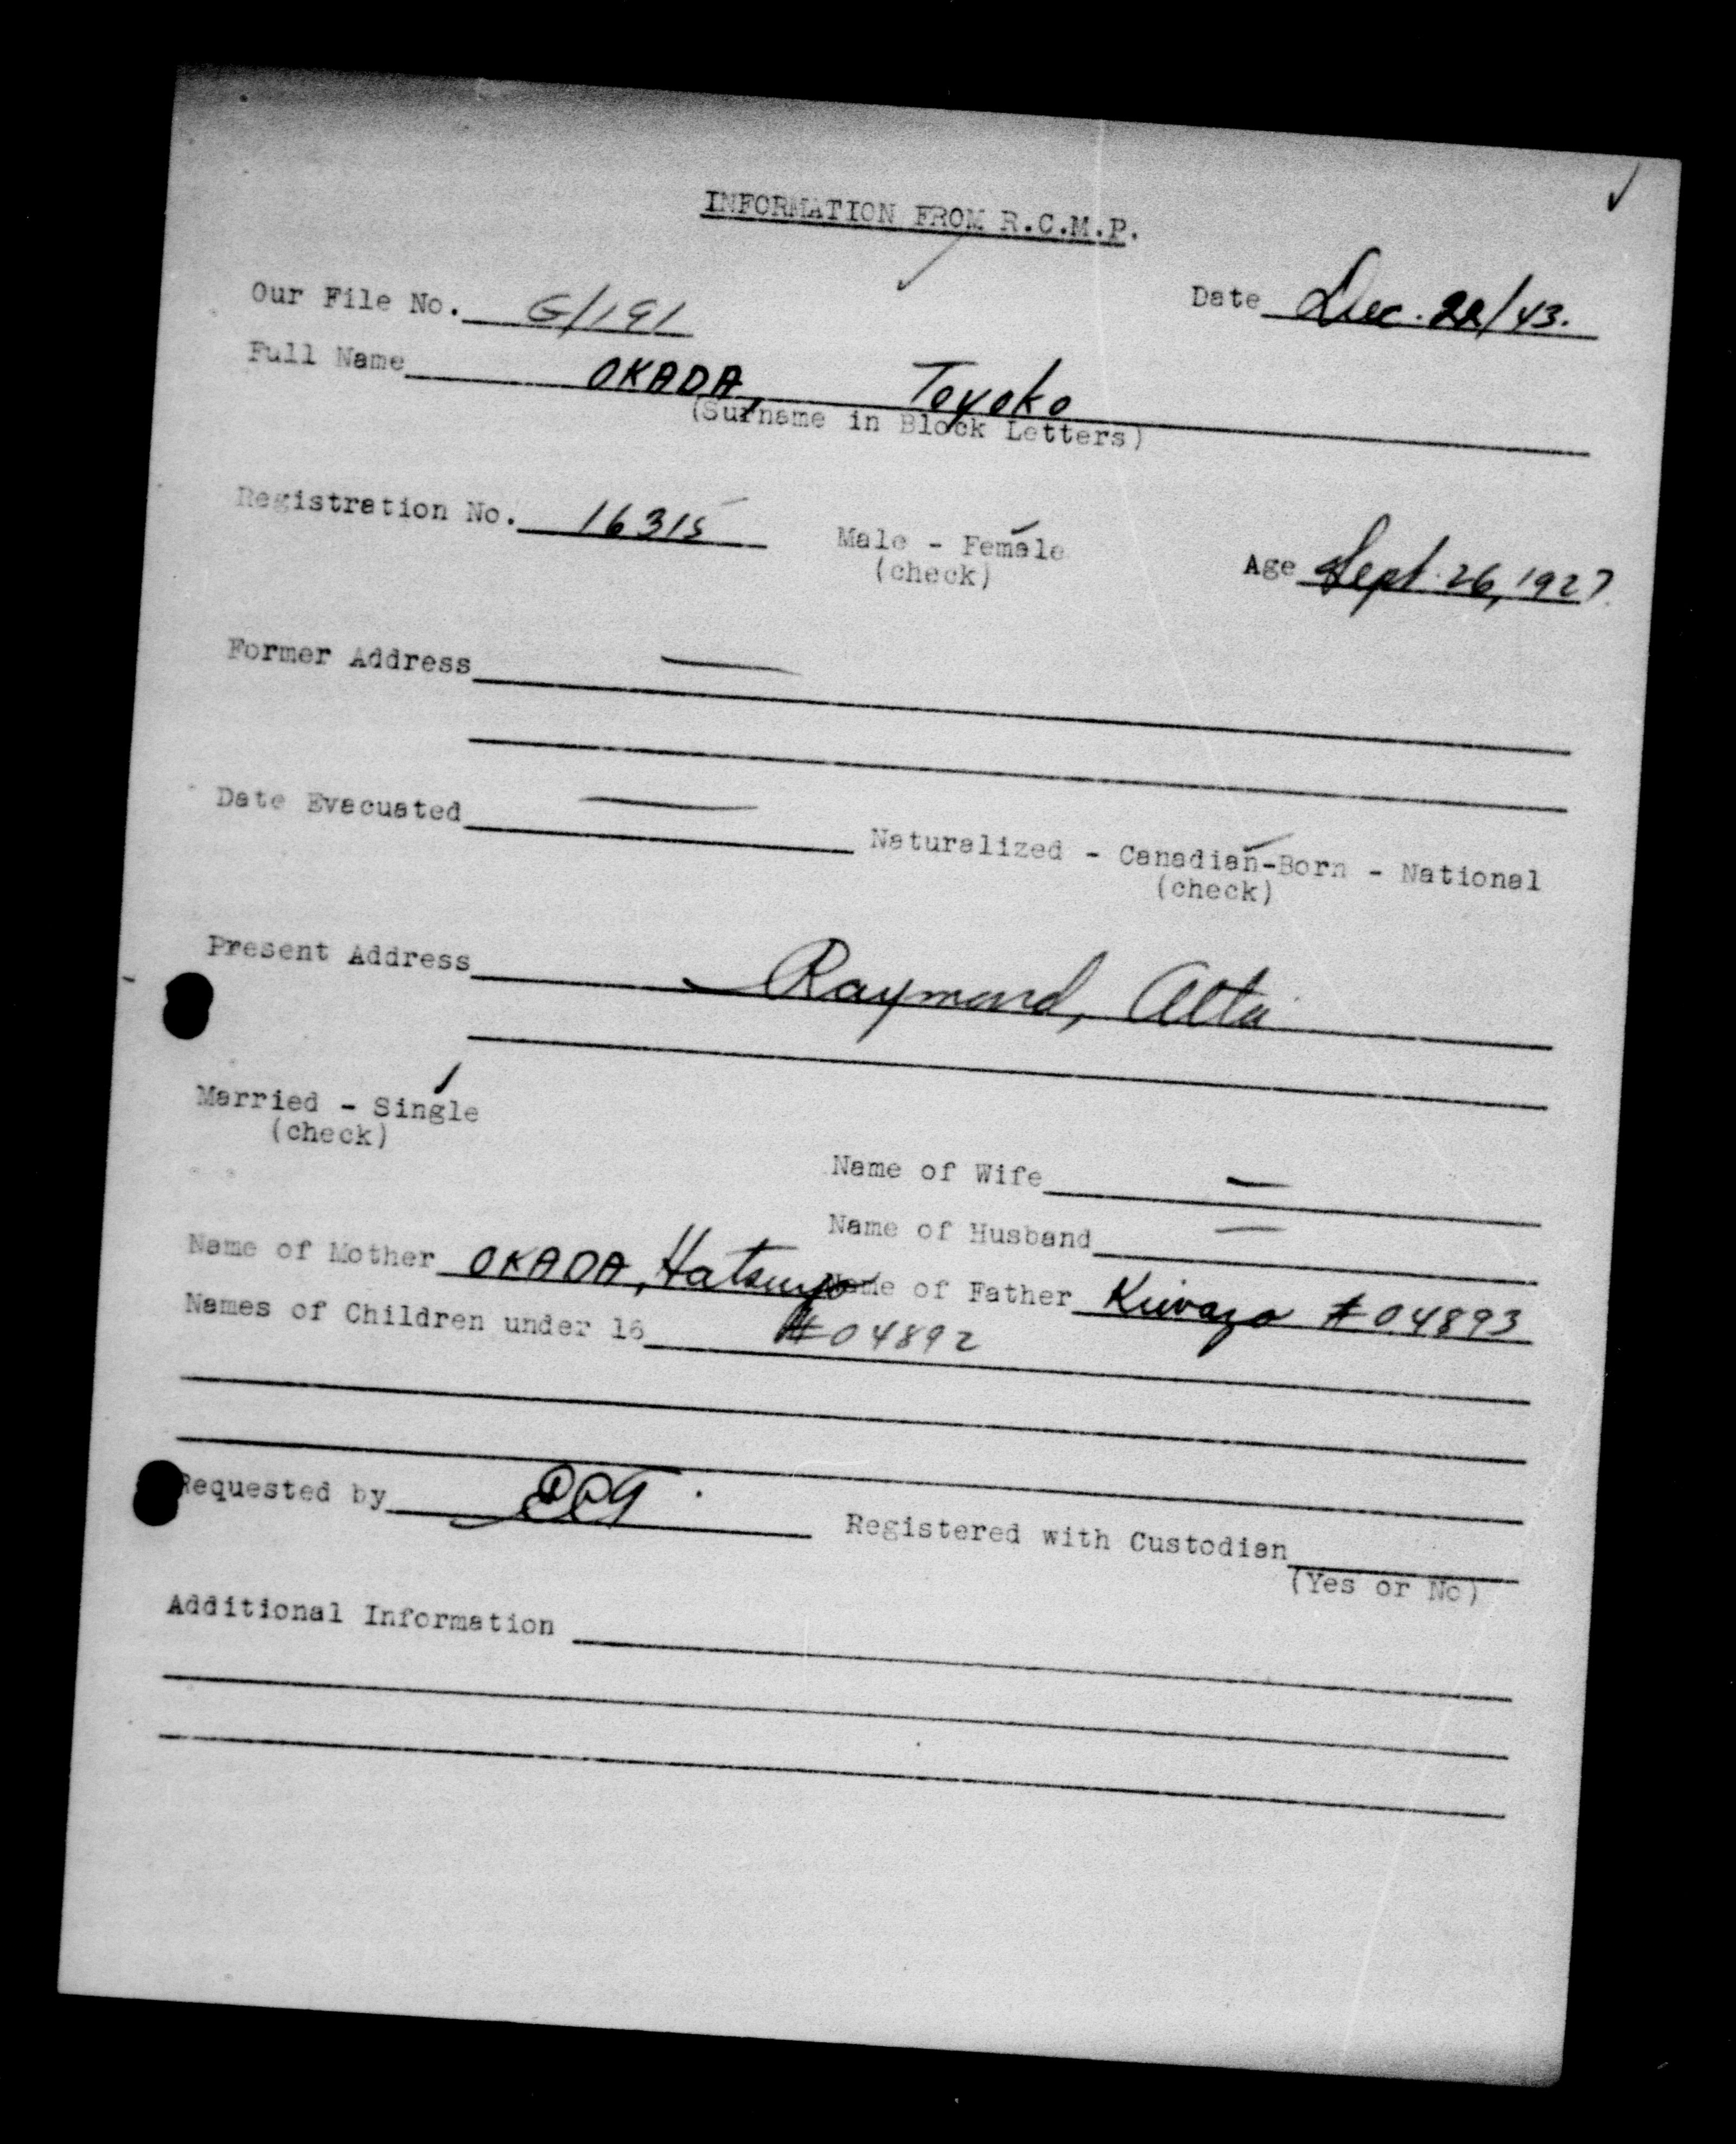 INFORMATION FROM R.C.M.P.
Our File No. G/191 Date Dec. 22/43.
Full Name OKADA, Toyoko
(Surname in Block Letters)
Registration No. 16315 Male - Female Age Sept. 26, 1927
(check)
Former Address —
Date Evacuated — Naturalized - Canadian-Born - National
(check)
Present Address Raymond, Alta
Married - Single
(check)
Name of Wife —
Name of Husband —
Name of Mother OKADA, Hatsuyo Name of Father Kiwazo #04893
Names of Children under 16 #04892
Requested by
Registered with Custodian
(Yes or No)
Additional Information